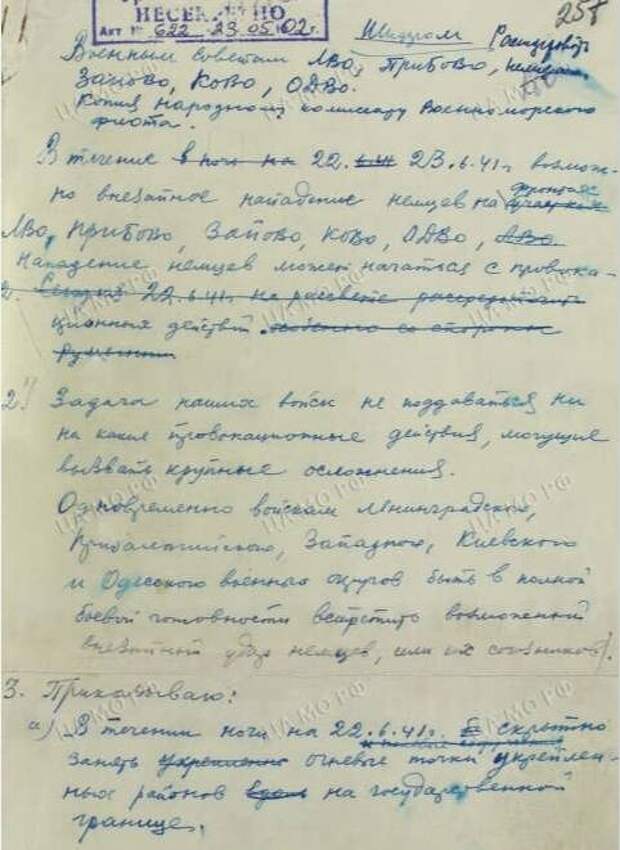 НЕСЕКРЕТНО
258
Акт № 622 23.05.02г.
Шифром
Военным советам ЛВО, ПРИБОВО,
ЗАПОВО, КОВО, ОДВО.
Копия народному комиссару Военноморского
флота.
В течение в ночь на 22. 23.6.41г возмож-
но внезапное нападение немцев на фронтах
ЛВО, ПРИБОВО, ЗАПОВО, КОВО, ОДВО,
Нападение немцев может начаться с провока-
2. Сегодня 22.6.41г на рассвете
ционных действий. особенно со стороны
Румынии
2. Задача наших войск не поддаваться ни
на какие провокационные действия, могущие
вызвать крупные осложнения.
Одновременно войскам Ленинградского,
Прибалтийского, Западного, Киевского
и Одесского военных округов быть в полной
боевой готовности встретить возможный
внезапный удар немцев, или их союзников.
3. Приказываю:
а) В течении ночи на 22.6.41г. скрытно
занять укрепленно огневые точки укреплен-
ных районов вдоль на государственной
границе.
ЦАМО РФ